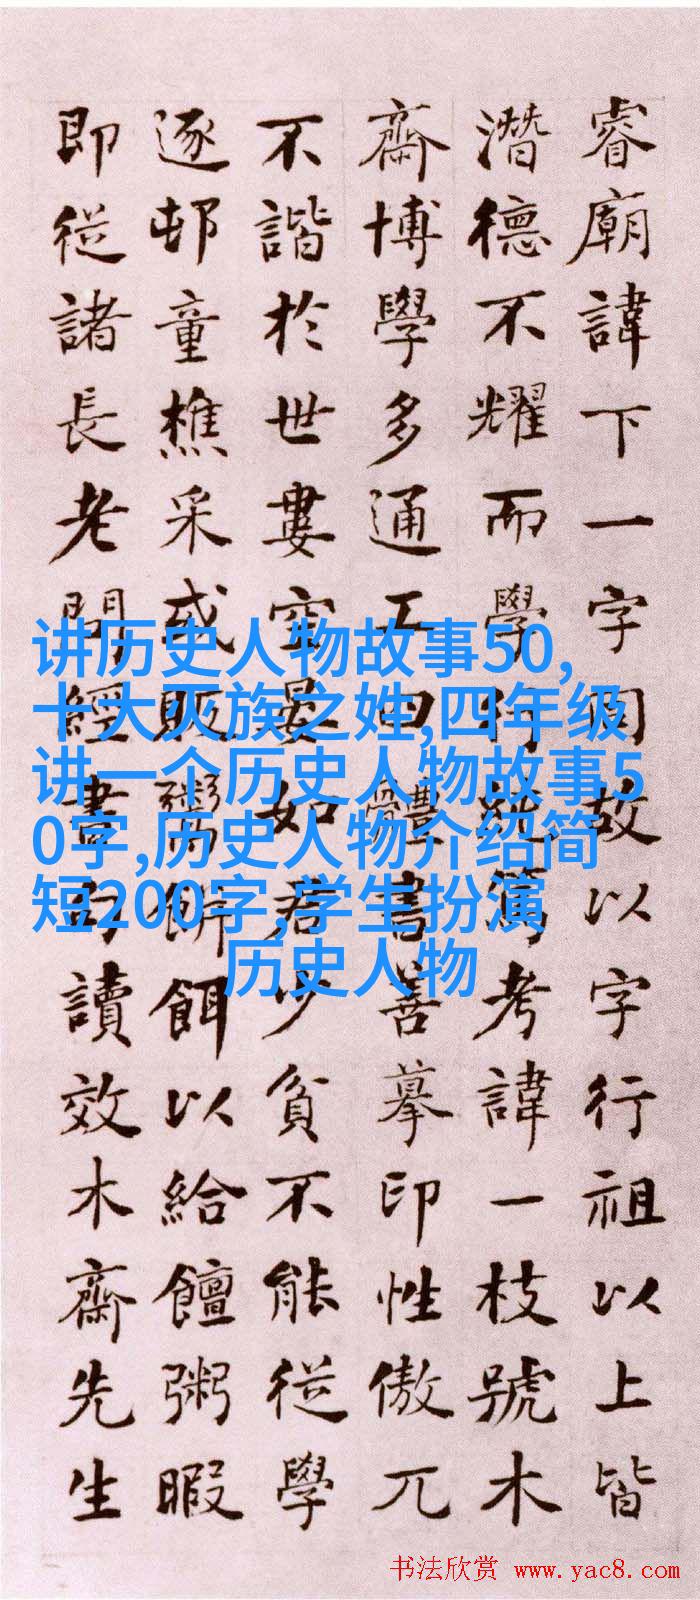 睿廟諱下一字同故以字行祖以上皆
潛德不耀而學行純篤考諱一枝號木
齋博學多通工四體書善摹印性傲兀
不諧於世婁空晏如君少貧不能從學
逐邨童樵采或販粥餅餌以給饘粥暇
即從諸長老問經書句讀效木齋先生
讲历史人物故事50,
十大灭族之姓,四年级
讲一个历史人物故事5
0字,历史人物介绍简
短200字,学生扮演
历史人物
书法欣赏 www.yac8.com